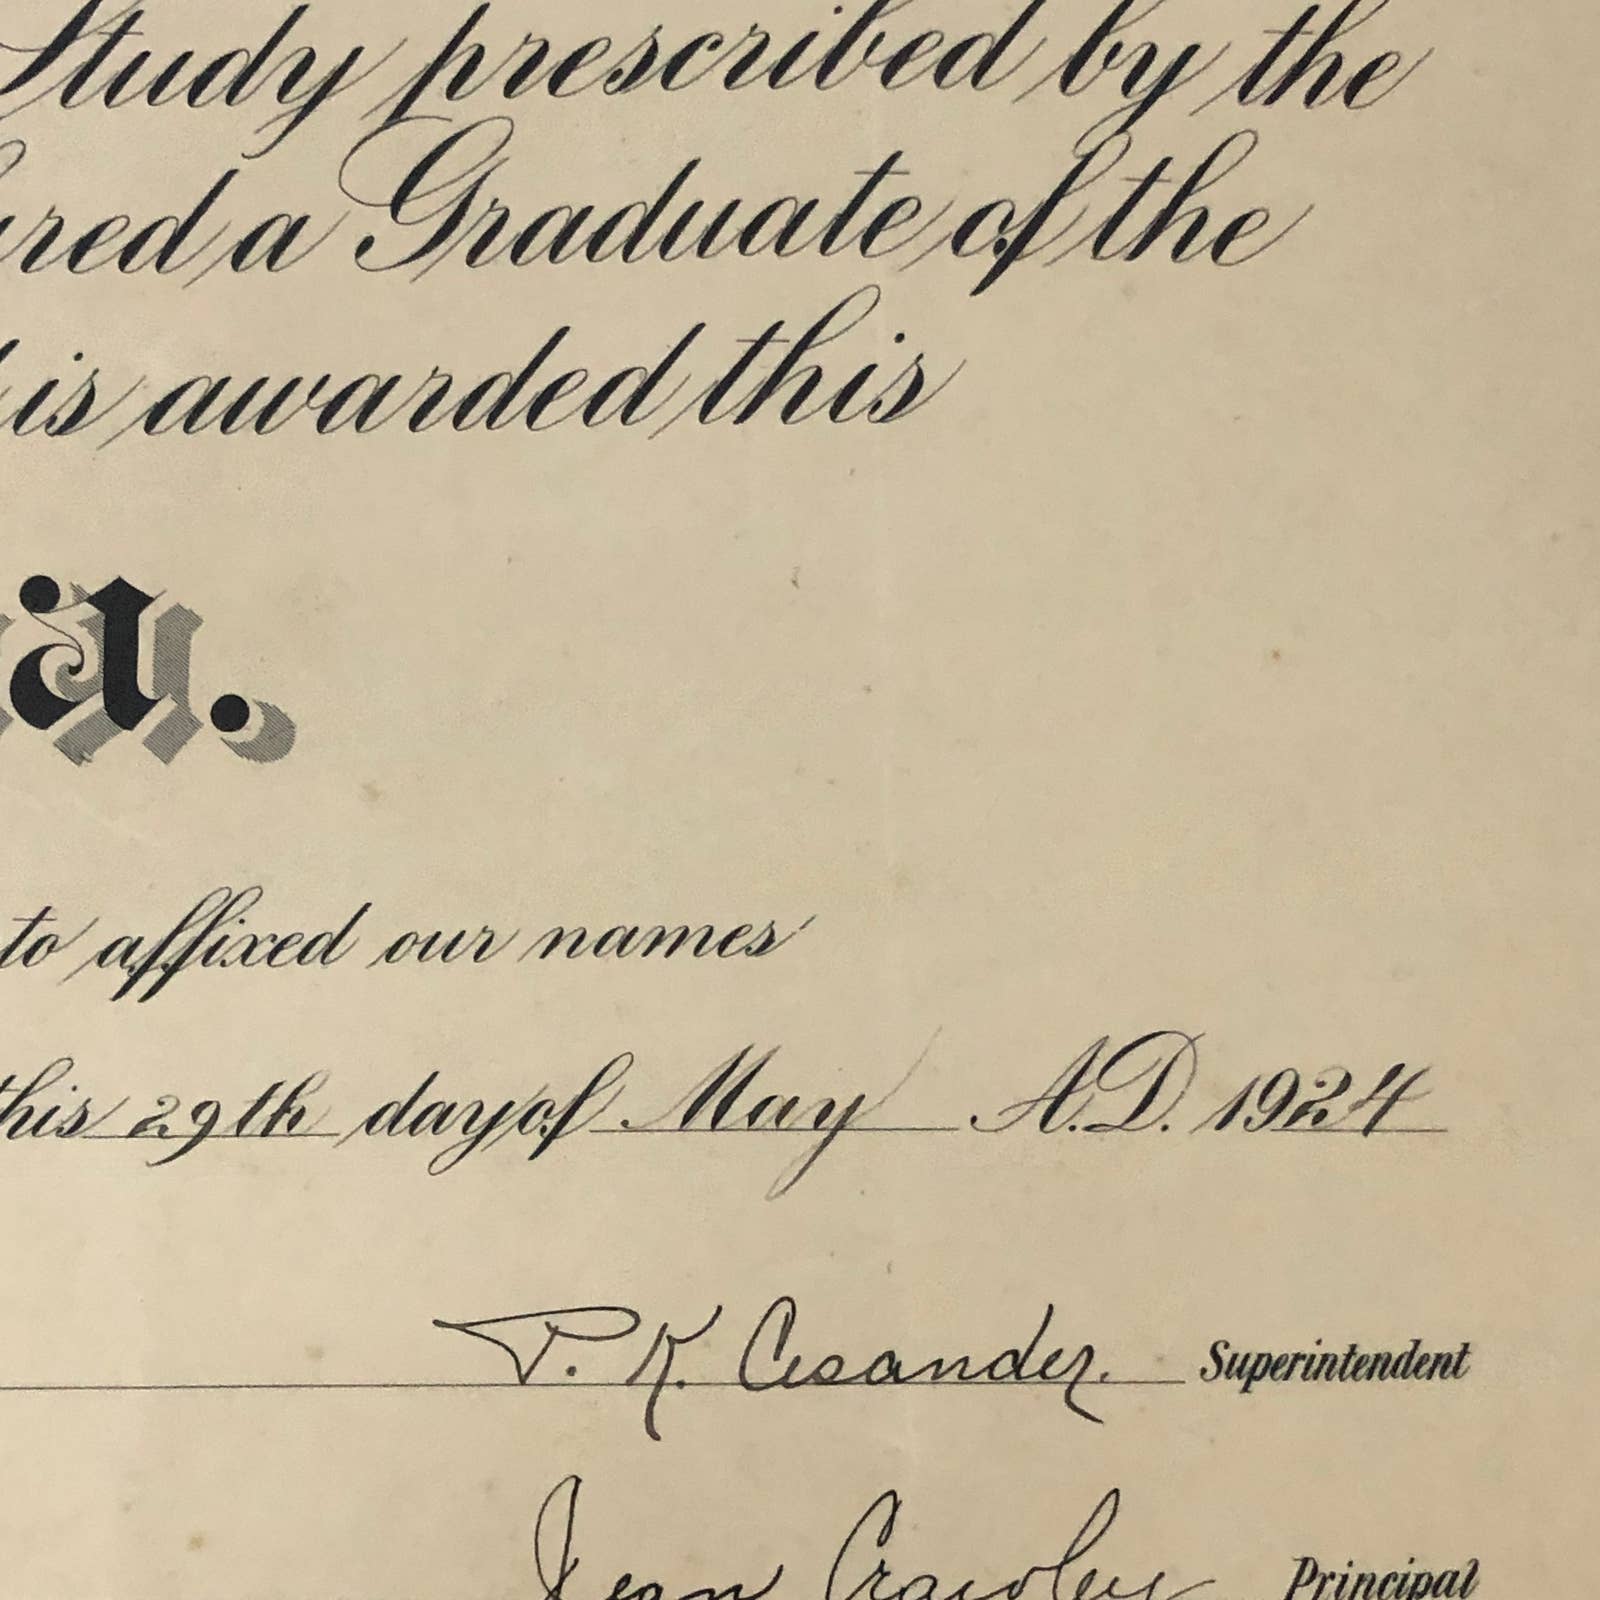 Study prescribed by the
red a Graduate of the
is awarded this
a.
to affixed our names
this 29th day of May A.D. 1924
P. K. Superintendent
Jean Crawley Principal